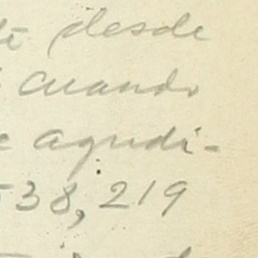 desde
cuando
agudi-
538,219